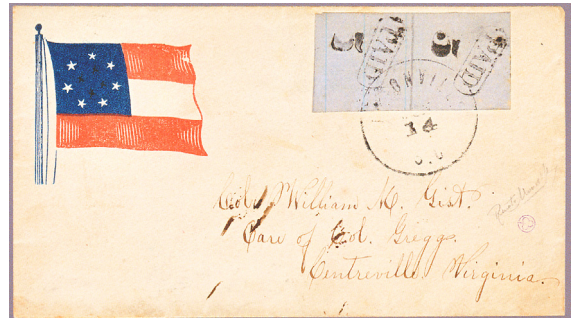 5 PAID
5 PAID
14
Col. William M. Gist.
Care of Col. Gregg.
Centreville. Virginia.